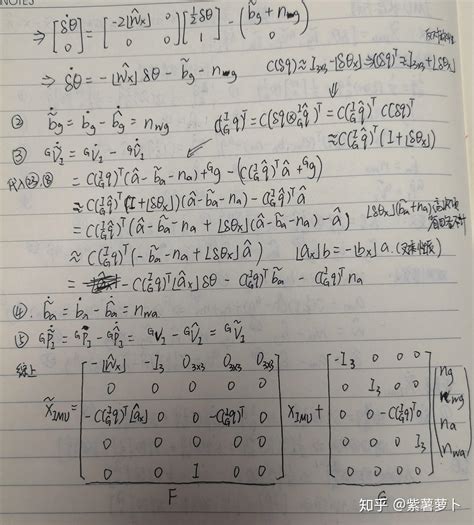 NOTES
⇒ [δθ̇ 0] = [-2⌊ŵ×⌋ 0 0 0] [½δθ 1] - (b̃g + nwg 0)
⇒ δθ̇ = -⌊ŵ×⌋δθ - b̃g - nwg
C(δq) ≈ I3×3 - ⌊δθ×⌋ ⇒ C(δq)ᵀ ≈ I3×3 + ⌊δθ×⌋
② b̃̇g = ḃg - b̂̇g = nwg
C(ᴵGq)ᵀ = C(δq⊗ᴵGq̂)ᵀ = C(ᴵGq̂)ᵀ C(δq)ᵀ
≈ C(ᴵGq̂)ᵀ(I + ⌊δθ×⌋)
③ ᴳṽ̇I = ᴳv̇I - ᴳv̂̇I
= C(ᴵGq)ᵀ(â - b̃a - na) + ᴳg - (C(ᴵGq̂)ᵀ â + ᴳg)
≈ C(ᴵGq̂)ᵀ(I + ⌊δθ×⌋)(â - b̃a - na) - C(ᴵGq̂)ᵀ â
= C(ᴵGq̂)ᵀ(â - b̃a - na + ⌊δθ×⌋(â - b̃a - na) - â)
⌊δθ×⌋(b̃a + na)
≈ C(ᴵGq̂)ᵀ(-b̃a - na + ⌊δθ×⌋â)
⌊a×⌋b = -⌊b×⌋a.
= -C(ᴵGq̂)ᵀ⌊â×⌋δθ - C(ᴵGq̂)ᵀ b̃a - C(ᴵGq̂)ᵀ na
④. b̃̇a = ḃa - b̂̇a = nwa
⑤ ᴳp̃̇I = ᴳṗI - ᴳp̂̇I = ᴳvI - ᴳv̂I = ᴳṽI
综上
-⌊ŵ×⌋ -I3 03×3 03×3 03×3
0 0 0 0 0
x̃̇IMU = -C(ᴵGq̂)ᵀ⌊â×⌋ 0 0 -C(ᴵGq̂)ᵀ 0 x̃IMU +
0 0 0 0 0
0 0 I 0 0
F
-I3 0 0 0
0 I3 0 0
0 0 -C(ᴵGq̂)ᵀ 0
0 0 0 I3
0 0 0 0
G
ng
nwg
na
nwa
知乎 @紫薯萝卜